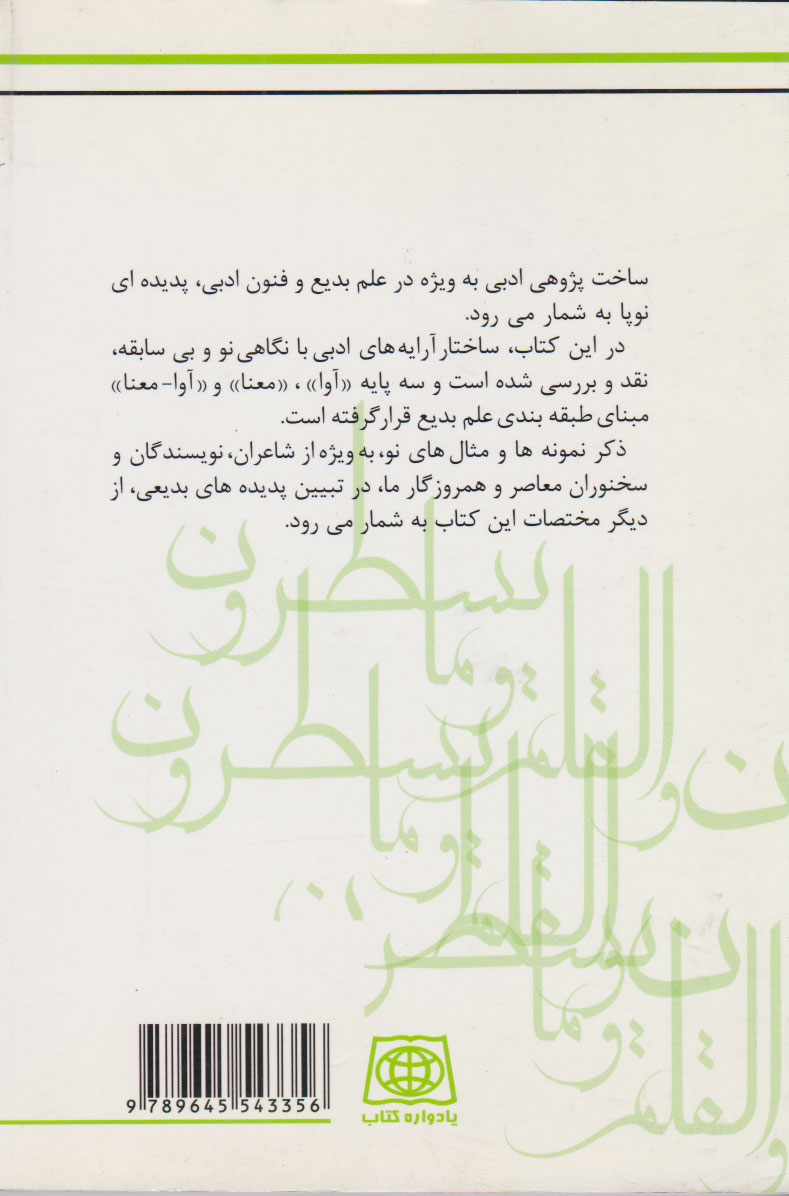 ساخت پژوهی ادبی به ویژه در علم بدیع و فنون ادبی، پدیده ای
نوپا به شمار می رود.
در این کتاب، ساختار آرایه‌های ادبی با نگاهی نو و بی سابقه،
نقد و بررسی شده است و سه پایه «آوا» ، «معنا» و «آوا-معنا»
مبنای طبقه بندی علم بدیع قرارگرفته است.
ذکر نمونه ها و مثال های نو، به ویژه از شاعران، نویسندگان و
سخنوران معاصر و همروزگار ما، در تبیین پدیده های بدیعی، از
دیگر مختصات این کتاب به شمار می رود.
ن والقلم وما یسطرون
ن والقلم وما یسطرون
9 789645 543356
یادواره کتاب